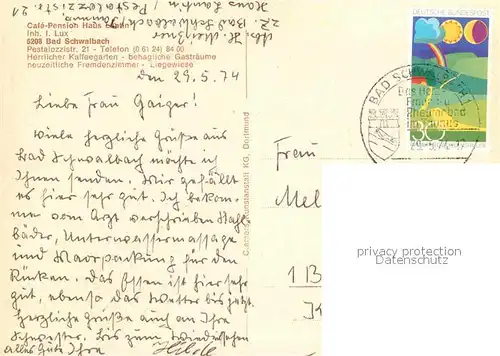 Abs. H. Meißner
z. Z. Bad Schwalbach / Taunus
Haus Lauter / Pestalozzistr. 21
Café-Pension Haus
Inh. I. Lux
6208 Bad Schwalbach
Pestalozzistr. 21 - Telefon (0 61 24) 84 00
Herrlicher Kaffeegarten - behagliche Gasträume
neuzeitliche Fremdenzimmer - Liegewiese
den 29.5.74
Liebe Frau Gaiger!
Viele herzliche Grüße aus
Bad Schwalbach möchte ich
Ihnen senden. Mir gefällt
es hier sehr gut. Ich bekom-
me vom Arzt verschrieben Stahl-
bäder, Unterwassermassage
und Moorpackung für den
Rücken. Das Essen ist hier sehr
gut, ebenso das Wetter bis jetzt.
Herzliche Grüße auch an Ihre
Schwester. Bis zum Wiedersehen
alles Gute Ihre
Hilde
C. Kunstanstalt KG, Dortmund
DEUTSCHE BUNDESPOST
30
BAD SCHWALBACH 1
Das
Rheumabad
im Taunus
Frau
Mel
1 B
privacy protection
Datenschutz